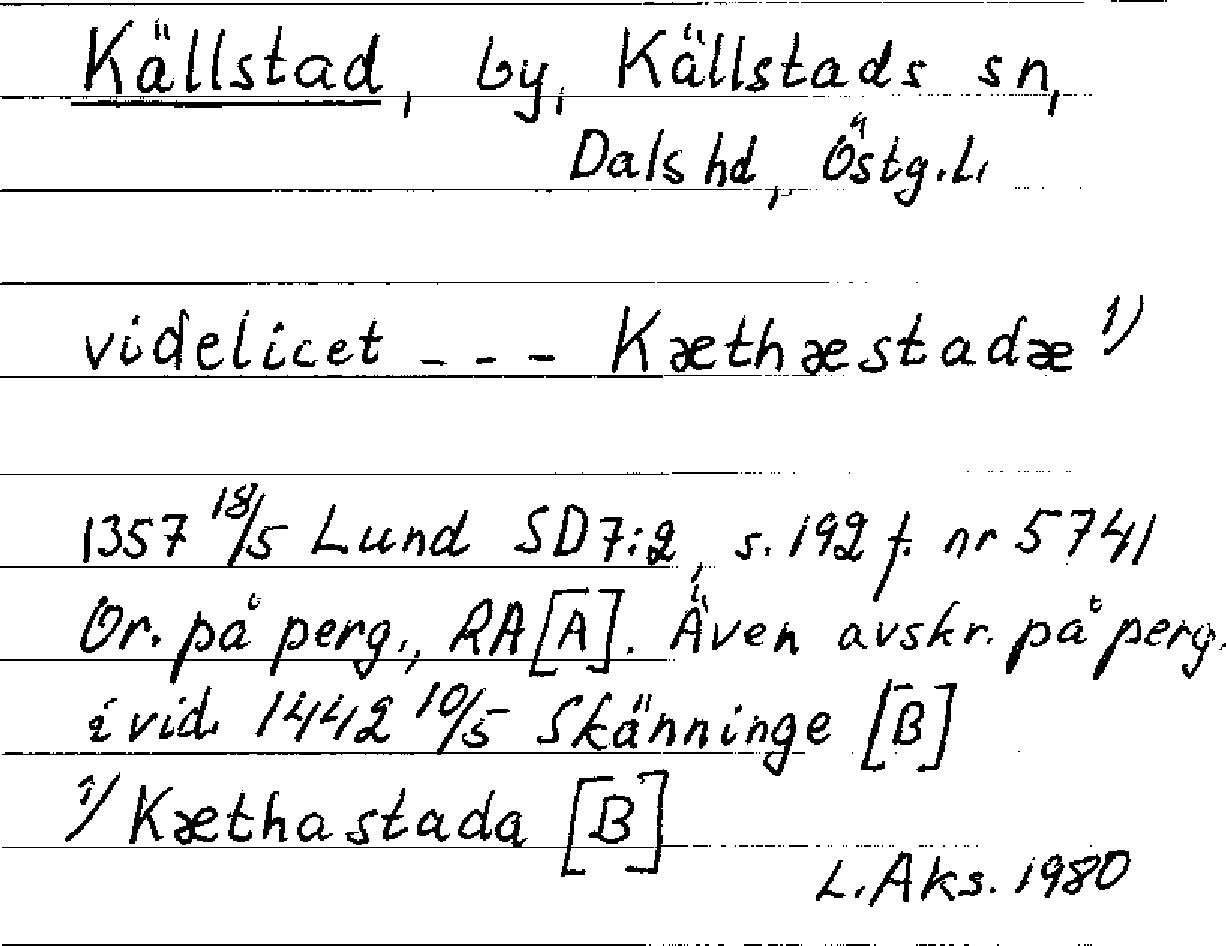 Källstad, by, Källstads sn,
Dals hd, Östg.L.
videlicet - - - Kæthæstadæ 1)
1357 18/5 Lund SD7:2, s. 192 f. nr 5741
Or. på perg., RA[A]. Även avskr. på perg.
i vid. 1442 10/5 Skänninge [B]
1) Kæthastada [B]
L. Aks. 1980